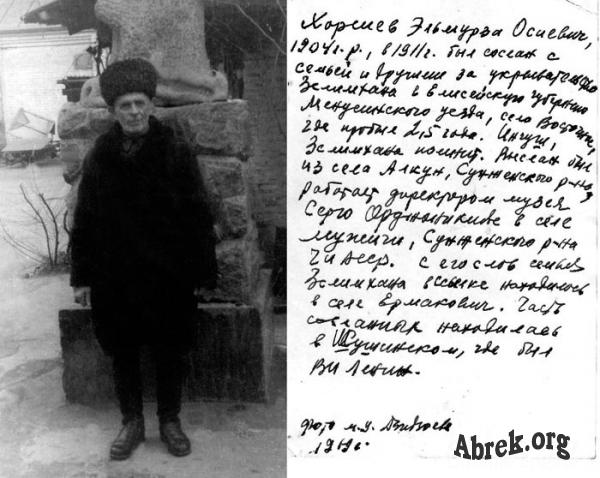 Хорсиев Эльмурза Осиевич,
1904 г.р., в 1911г. был сослан с
семьей и другими за укрывательство
Зелимхана в Енисейскую губернию
Менусинского уезда, село Восточное,
где пробыл 2,5 года. Ингуш,
Зелимхана помнит. Выслан был
из села Алкун, Сунженского р-на,
работает директором музея
Серго Орджоникидзе в селе
Мужичи, Сунженского р-на
ЧИАССР. С его слов семья
Зелимхана в ссылке находилась
в селе Ермакович. Часть
сосланных находилась
в Шушинском, где был
В И Ленин.
фото м.у.
Abrek.org